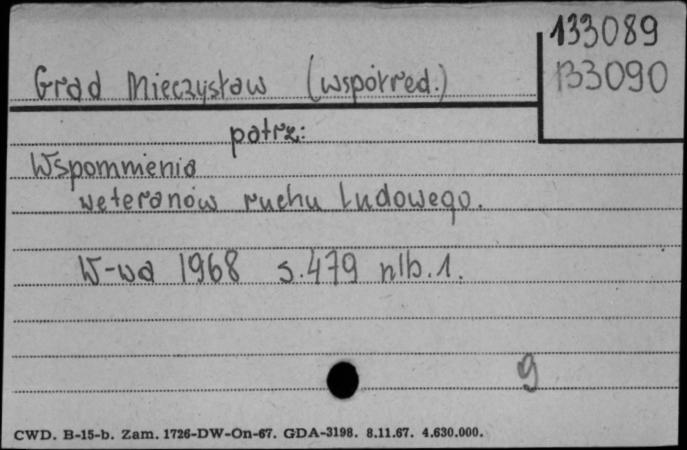 133089
133090
Grad Mieczysław (współred.)
patrz:
Wspomnienia
weteranów ruchu ludowego.
W-wa 1968 s.479 nlb.1.
9
CWD. B-15-b. Zam. 1726-DW-On-67. GDA-3198. 8.11.67. 4.630.000.